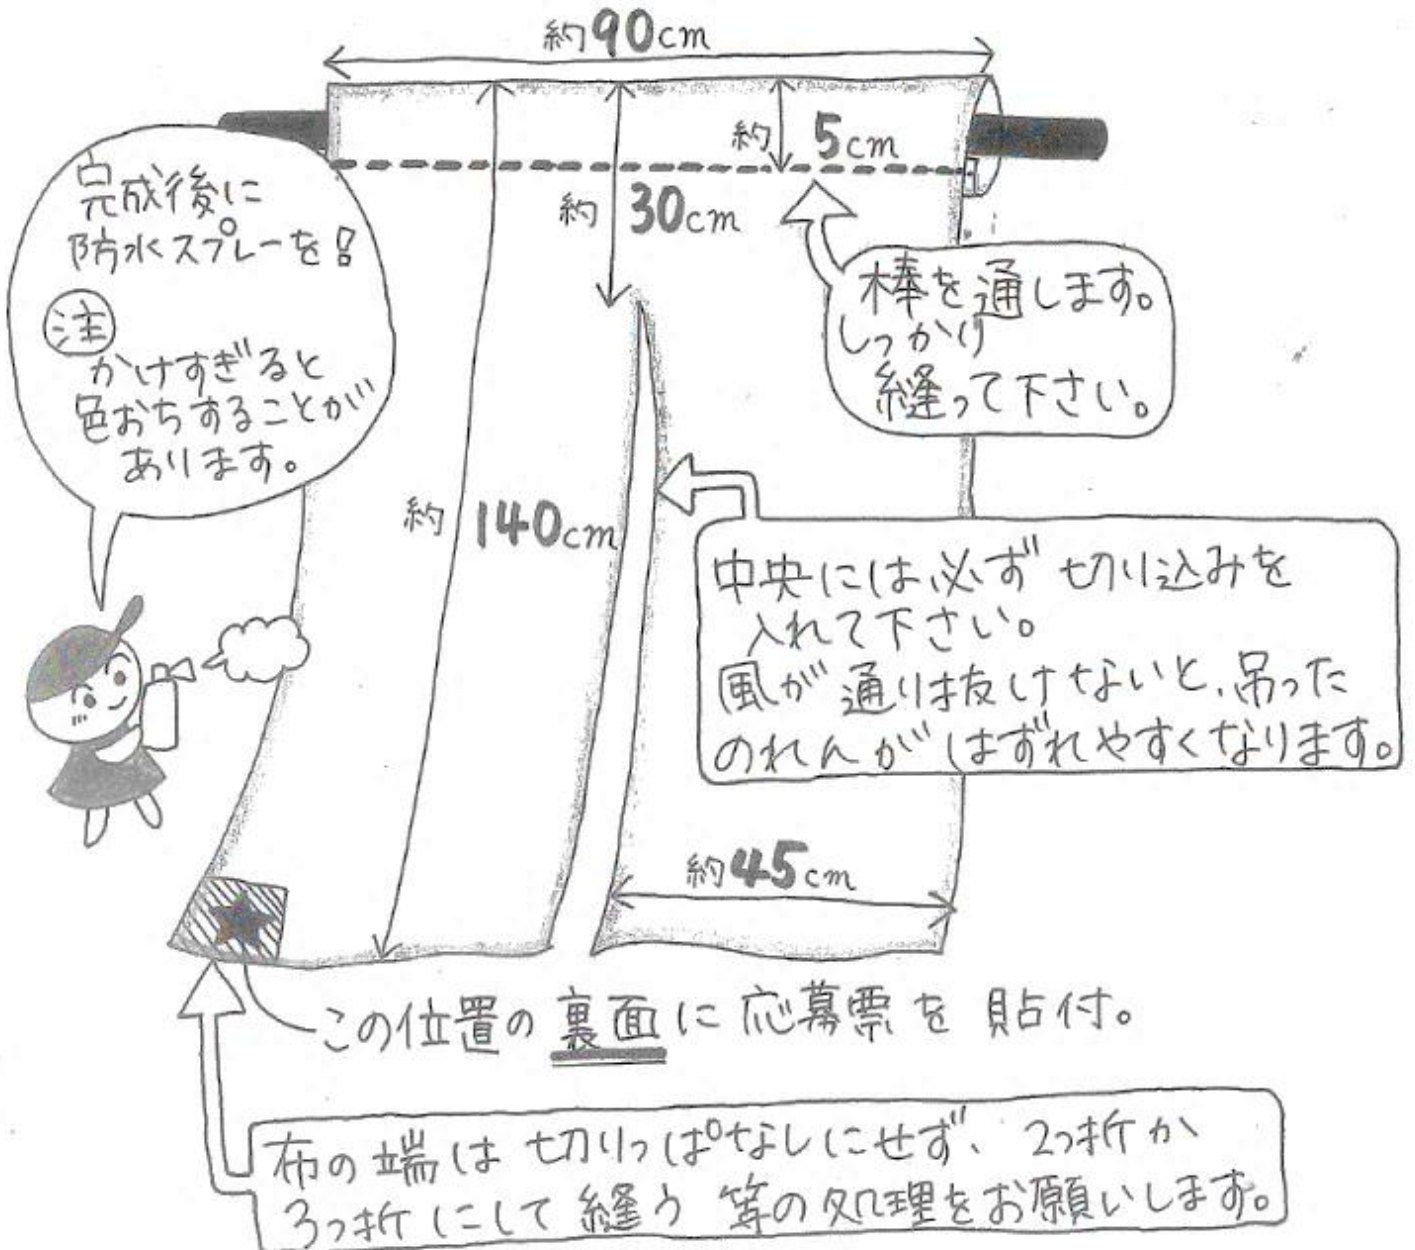 約90cm
約5cm
約30cm
完成後に
防水スプレーを!
注
かけすぎると
色おちすることが
あります。
棒を通します。
しっかり
縫って下さい。
約140cm
中央には必ず切り込みを
入れて下さい。
風が通り抜けないと、吊った
のれんがはずれやすくなります。
約45cm
この位置の裏面に応募票を貼付。
布の端は切りっぱなしにせず、2つ折か
3つ折にして縫う等の処理をお願いします。